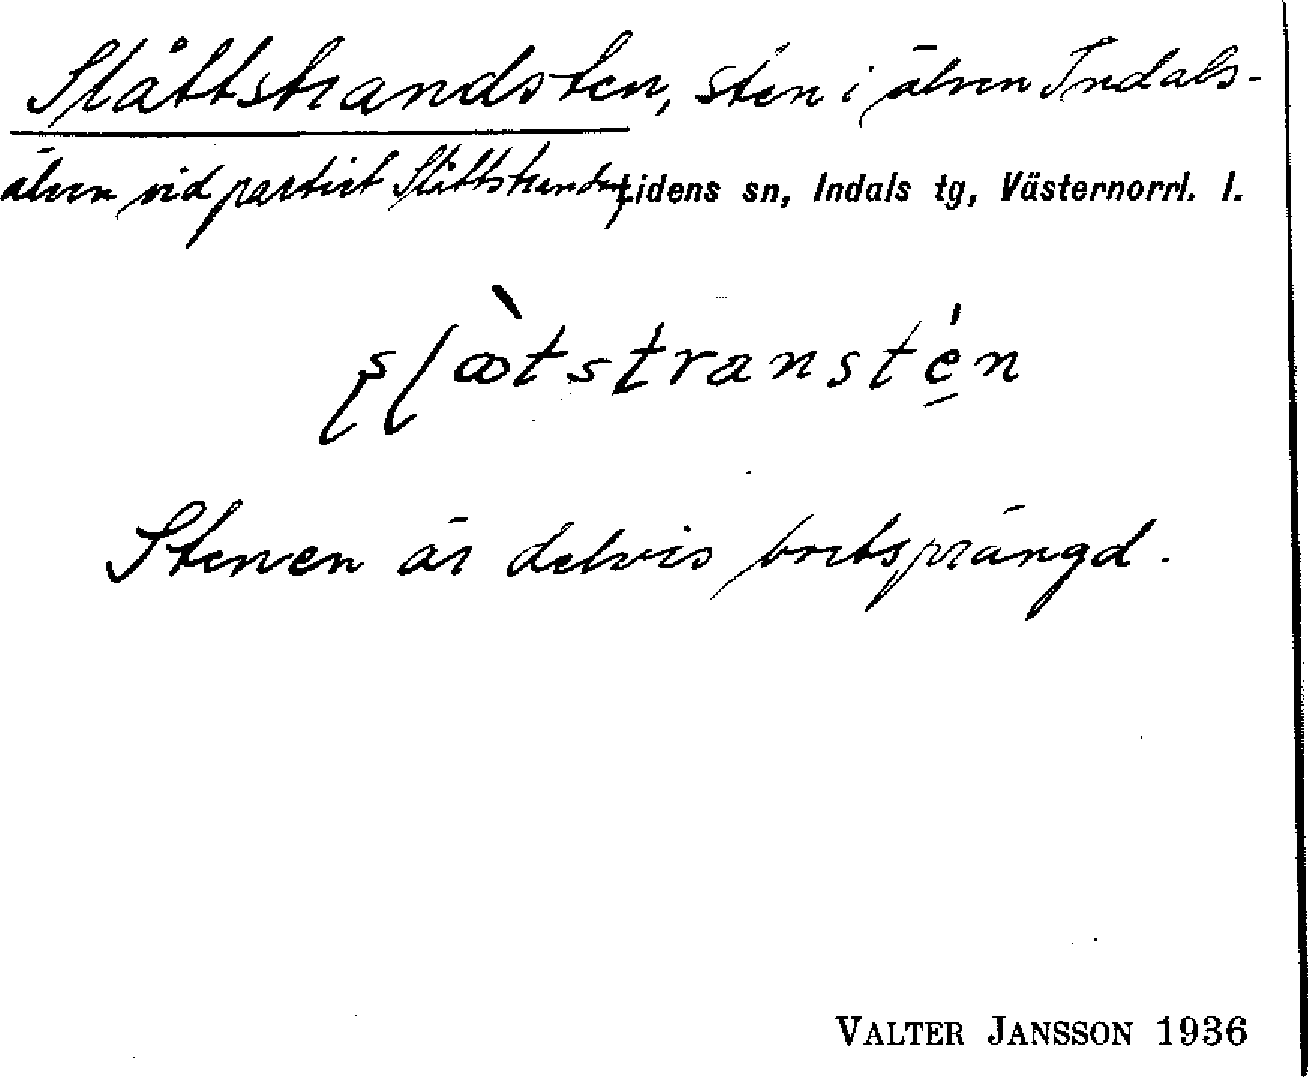 Slåttstrandsten, sten i älven Indals-
älven vid partiet Slåttstranden, Lidens sn, Indals tg, Västernorrl. l.
slòtstranstén
Stenen är delvis bortsprängd.
VALTER JANSSON 1936